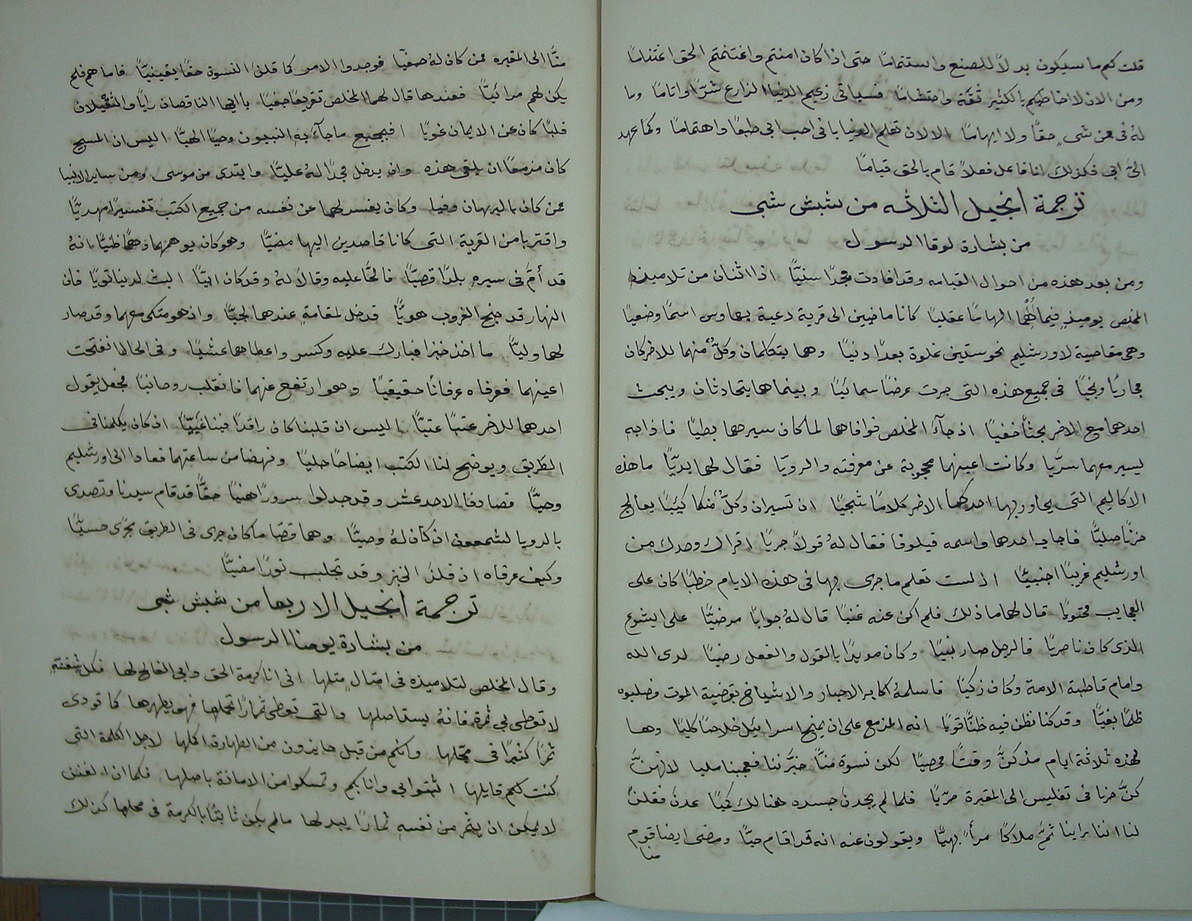 قلت لكم ما سيكون بدلاً للصنع واستتماما حتى اذا كان امنتم واغتنمتم الحق اغتناما
ومن الان لا اخاطبكم بالكثير ثقة واحتشاما فسياتي زعيم الدنيا الزارع شرّا واثاما وما
له فيّ من شي حقا ولا ابهاما الا لان تعلم الدنيا باني احب ابي طبعا واهتماما وكما عهد
اليّ ابي فكذلك انا فاعل فعلاً قام بالحق قياما
ترجمة انجيل الثلاثه من شبش شبى
من بشارة لوقا الرسول
ومن بعد هذه من احوال القيامه وقد افادت مجدًا سنيًّا اذا اثنان من تلاميذ
المخلص يوميذ فيما الهاسًا عقليا كانا ماضيين الى قرية دعية بعماوس اسمًا وضعيا
وهي مقاصية لاورشليم نحو ستين غلوة بعدًا دنيا وهما يتكلمان وكلٌّ منهما للاخر كان
مجاريًا ونجيًا في جميع هذه التي جرت عرضًا سمائيًا وبينما هما يتحادثان ويبحث
احدهما مع الاخر بحثًا خفيًا اذ جآء المخلص فوافاهما لما كان سيرهما بطيًا فاذا به
يسير معهما سريًا وكانت اعينهما محجوبة عن معرفته والرويّا فقال لهما بديًّا ما هذه
الاكاليم التي يحاور بها احدكما الاخر كلامًا شجيًا ان تسيران وكلٌّ منكما كييبًا يعالج
حزنًا صليًا فاجاب احدهما واسمه قيلوفا فقال له قولاً جريًا اقرات وحدك من
اورشليم غريبًا اجنبيًا اذ لست تعلم ما جرى بها في هذه الايام خطبًا كان على
العجايب محتويًا قال لهما ما ذلك فلم كن عنه غنيًا قال له جوابًا مرضيًا على ايشوع
الذي كان ناصريًا فالرجل صار نبيًا وكان مويدًا بالقول والفعل رضيًا لدى الله
وامام قاطبة الامة وكان زكيًا فاسلمه اكابر الاحبار والاشياخ بقوضية الموت وصلبوه
ظلمًا بغيًا وقد كنا نظن فيه ظنًّا قويًا انه المزمع على ان يمنح اسراييل خلاصًا كليًا وها
لهذه ثلاثة ايام مذ كنّ وقتًا محصيًا لكن نسوة منّا خبّرننا فعجبنا مليا لانهنّ
كنّ حزنا في تغليس الى المقبرة مريًا فلما لم يجدن جسده هنالك كيًا عدن فقلن
لنا اننا راينا ثمَّ ملاكًا مراً بهيًا ويقولون عنه انه قد اقام حيًّا ومضى ايضا قوم
منا
منّا الى المقبره ممن كان له صفيًا فوجدوا الامر كما قلن النسوة حقًا يقينيًا فاما هو فلم
يكن لهم مرائيًا فعندها قال لهما المخلص تقريعًا صفيًا يا ايها الناقصان رايًا والثقيلان
قلبًا كان عن الايمان غويًا افبجميع ما جآء به النبيون وحيًا الهيًا اليس ان المسيح
كان مزمعًا ان يلقى هذه وان يدخل مجدًا له عليًا وابتدى من موسى ومن ساير الانبيا
ممن كان بالبرهان وفيا وكان يفسر لهما عن نفسه من جميع الكتب تفسيرًا مهديًا
واقتربا من القرية التي كانا قاصدين اليها مضيًا وهو كان يوهمهما وهمًا ظنيًا بانه
قد أمّ في سيره بلدًا قصيًا فالحّا عليه وقالا له وقد كان ابيًا البث لدينا ثويًا فان
النهار قد جنح الغروب هويًا فدخل لمقامة عندهما لجيًّا واذ هو متكى معهما وقد صار
لهما وليًا ما اخذ خبزا فبارك عليه وكسر واعطاهما عشيًا وفي الحال انفتحت
اعينهما فعرفاه عرفانًا حقيقيًا وهو ارتفع عنهما فانقلب روحانيًا فجعل يقول
احدهما للاخر عتبًا عتيًا اليس ان قلبنا كان راقدًا فينا غبيًّا اذ كان يكلمنا في
الطريق ويوضح لنا الكتب ايضاحًا جليًا ونهضا من ساعتهما فعادا الى اورشليم
وحيًا فصادفا الاحد عشر وقد جدلوا سرورًا هنيًا حقًّا قد قام سيدنا وتصدى
بالرويا لشمعون اذ كان له وصيًا وهما قصّا ما كان جرى في الطريق بجرى حسيًا
وكيف عرفاه اذ فلذ الخبز وقد تجلب نورًا مضيًّا
ترجمة انجيل الاربعا من شبش شبى
من بشارة يوحنا الرسول
وقال المخلص لتلاميذه في امثال مثلها اني انا كرمة الحق وابي الفالح لها فكل شفنة
لا تعطى بي ثمرة فانه يستاصلها والتي تعطى ثمارًا تحملها فهو يطهرها كما تودى
ثمرًا كثيرًا في محملها وانكم من قبل حايزون من الطهارة اكملها لاجل الكلمة التي
كنت لكم قايلها اثبتوا بي وانا بكم وتمسكوا من الامانة باصلها فكما ان الغصن
لا يمكن ان يثمر من نفسه ثمارًا يبدلها ما لم يكن ثابتًا بالكرمة في محلها كذلك